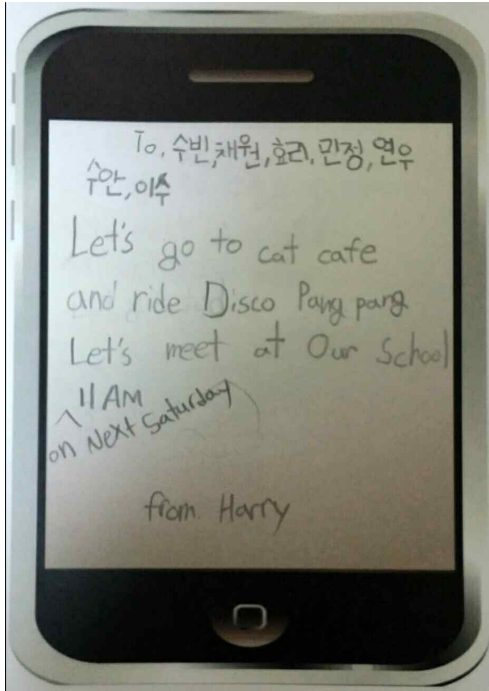 To, 수빈,채원,효리,민정,연우
수안,이수
Let's go to cat cafe
and ride Disco Pang pang
Let's meet at Our School
11 AM
^ on Next Saturday
from Harry